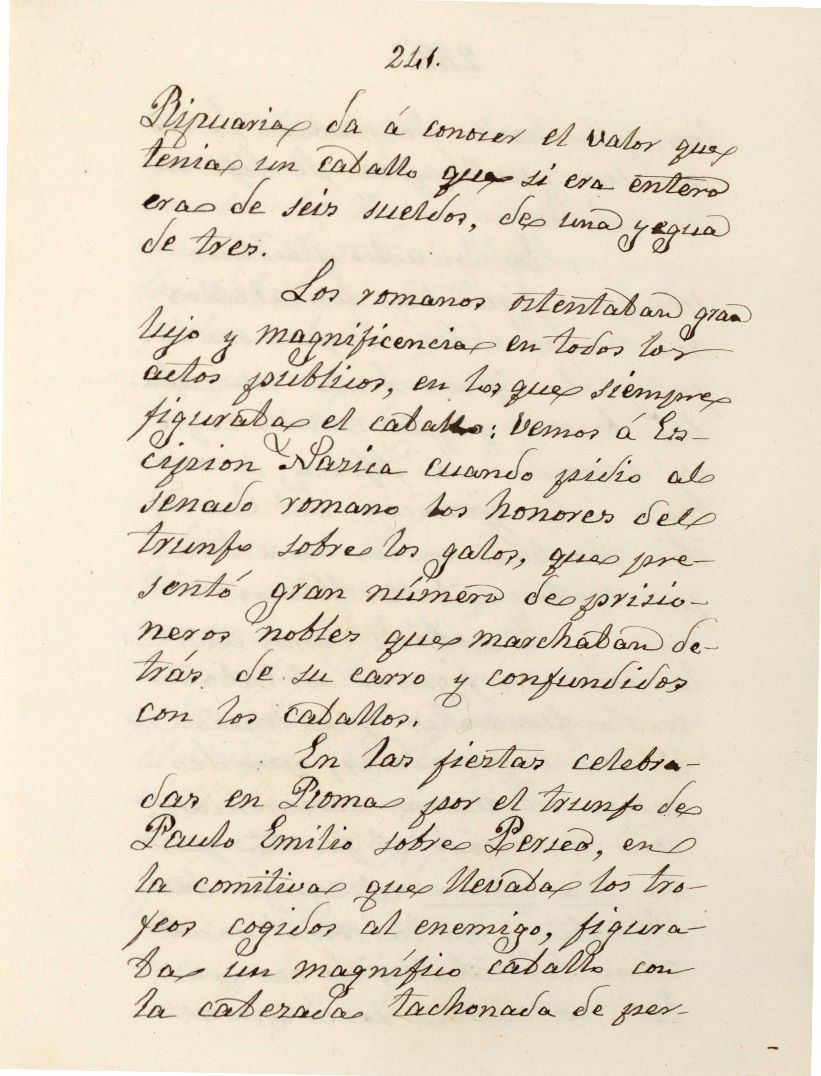 241.
Ripuaria da á conocer el valor que
tenia un caballo que si era entero
era de seis sueldos, de una yegua
de tres.
Los romanos ostentaban gran
lujo y magnificencia en todos los
actos públicos, en los que siempre
figuraba el caballo: vemos á Es-
cipion Nasica cuando pidio al
senado romano los honores del
triunfo sobre los galos, que pre-
sentó gran número de prisio-
neros nobles que marchaban de-
trás de su carro y confundidos
con los caballos.
En las fiestas celebra-
das en Roma por el triunfo de
Paulo Emilio sobre Perseo, en
la comitiva que llevaba los tro-
feos cogidos al enemigo, figura-
ba un magnífico caballo con
la cabezada tachonada de per-